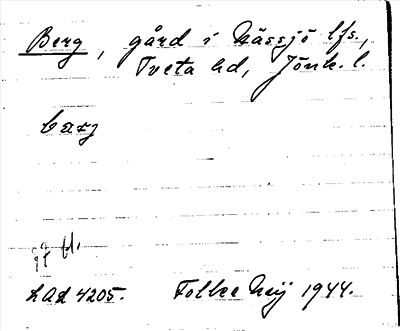 Berg, gård i Nässjö lfs.,
Tveta hd, Jönk. l.
bærj
LAd 4205. Folke Hÿ 1944.